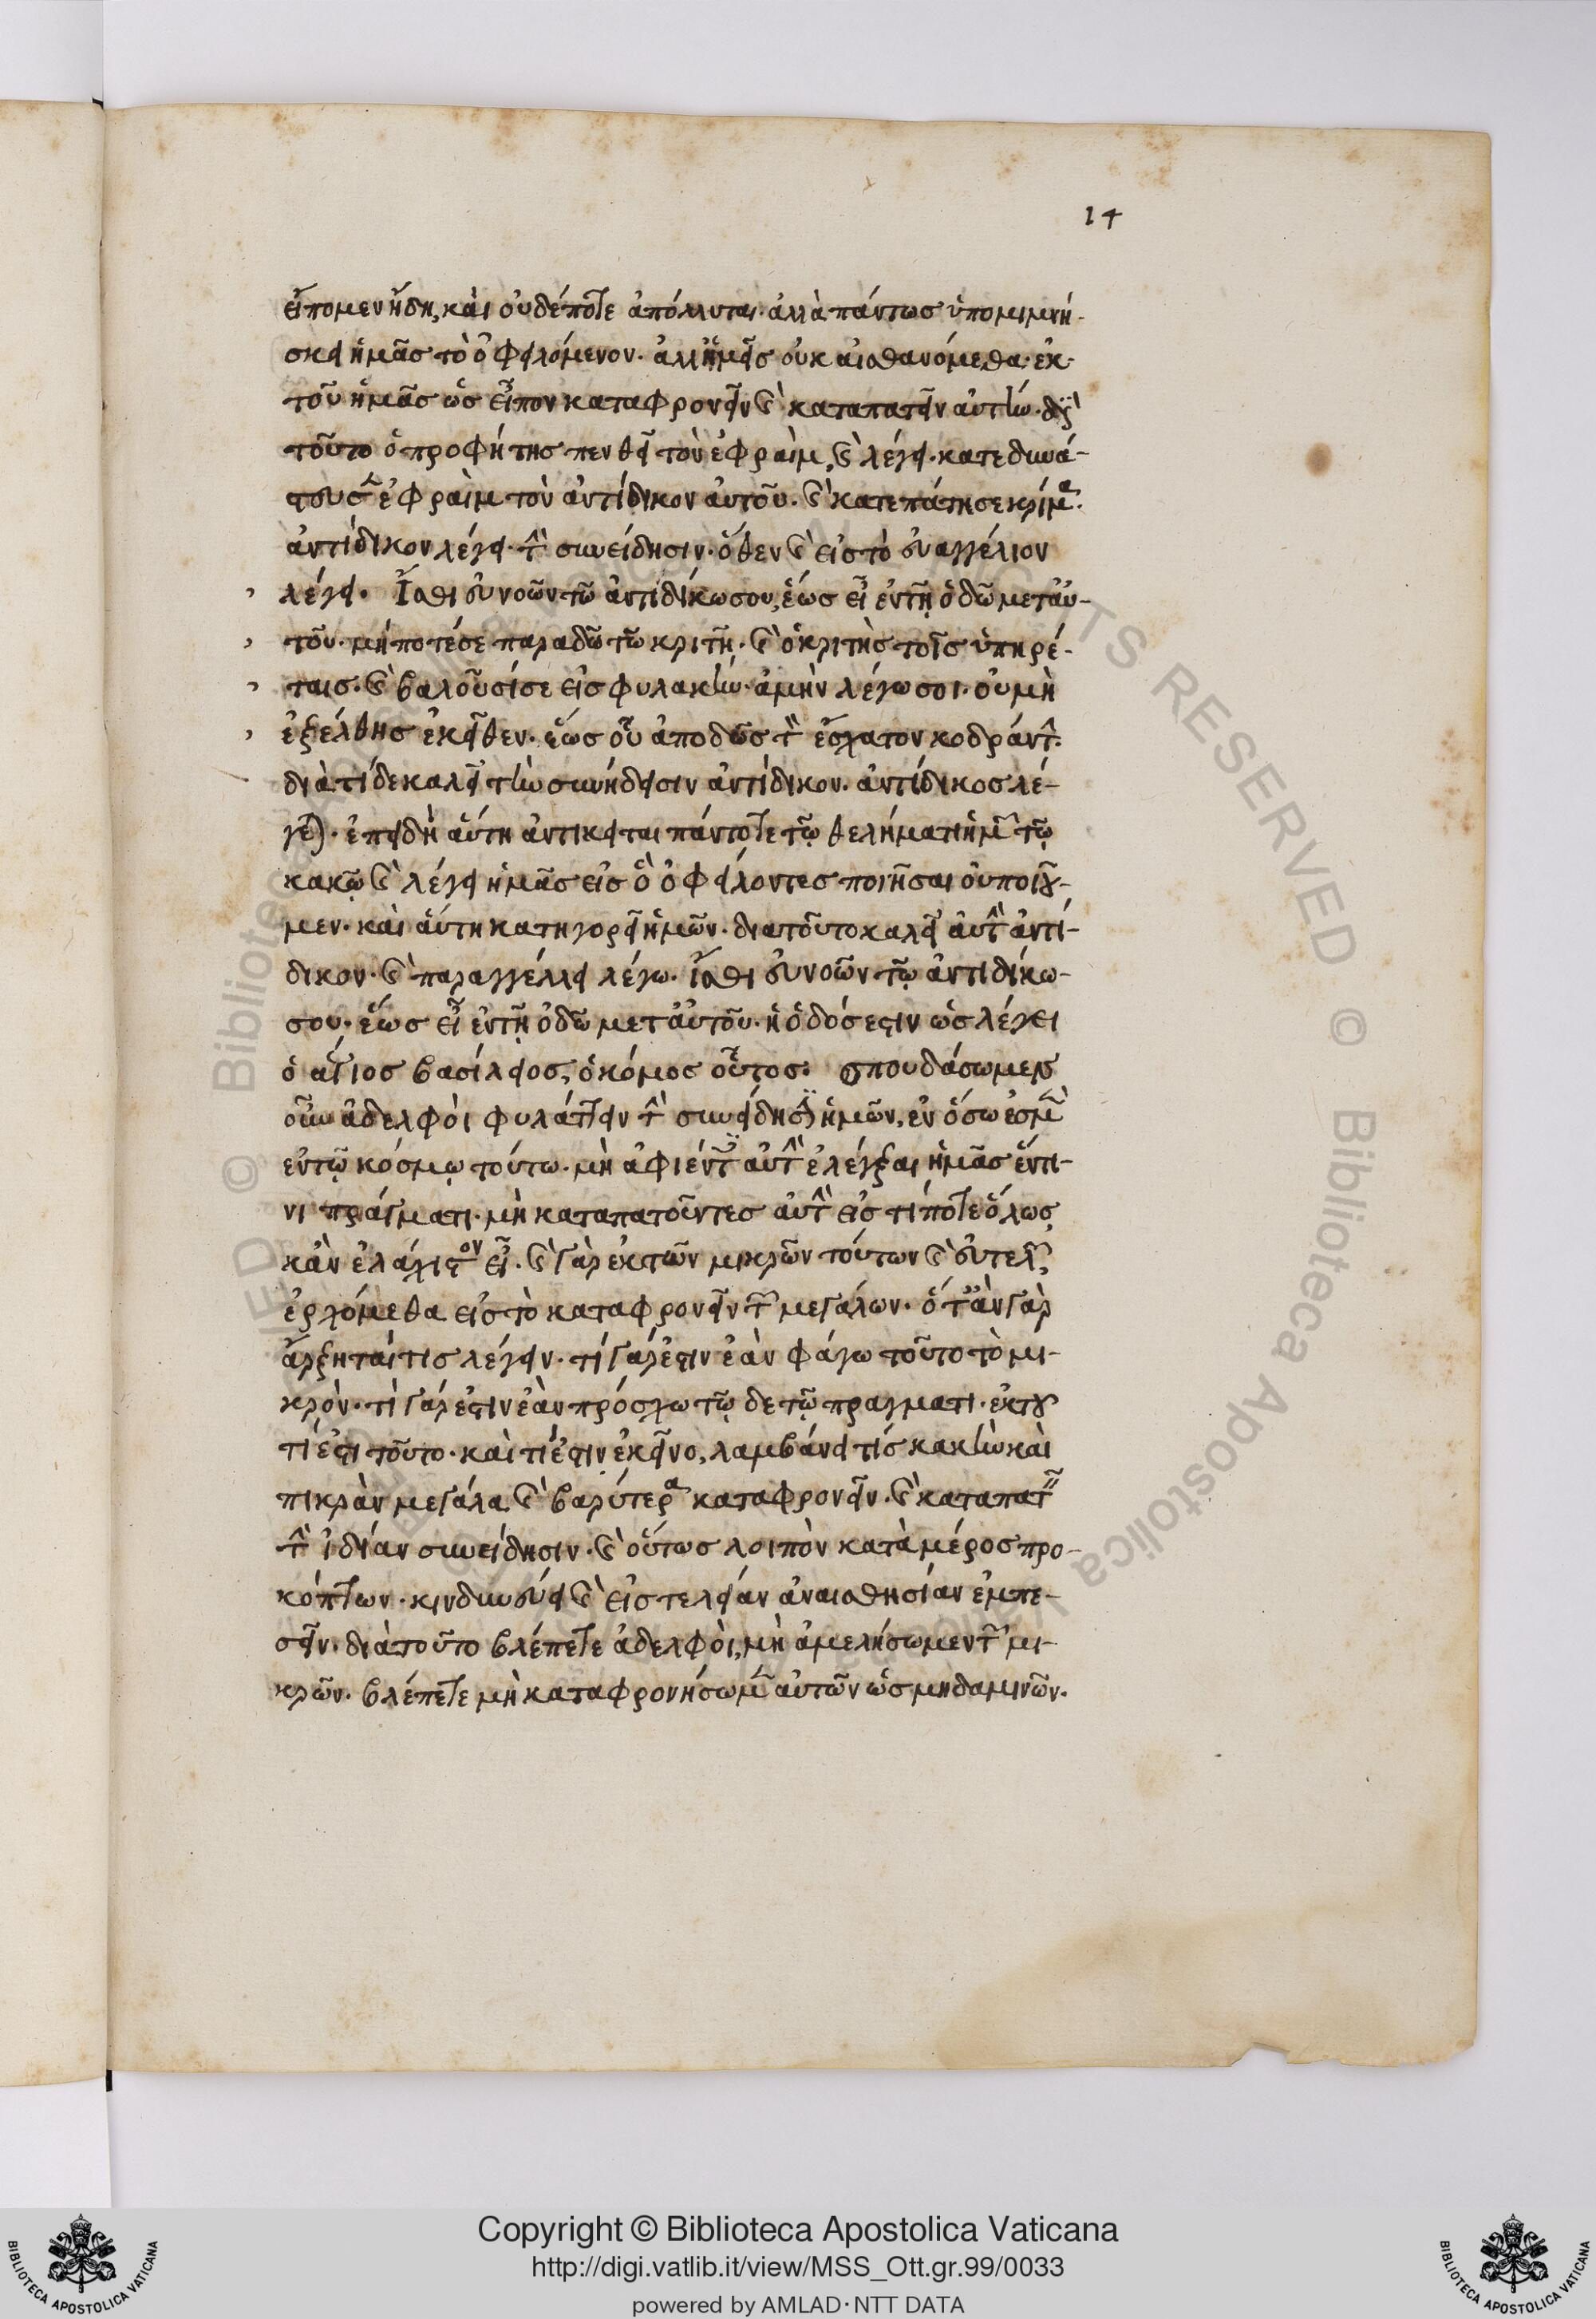 14
εἴπομεν ἤδη, καὶ οὐδέποτε ἀπόλλυται. ἀλλὰ πάντως ὑπομιμνή-
σκει ἡμᾶς τὸ ὀφειλόμενον. ἀλλ' ἡμεῖς οὐκ αἰσθανόμεθα. ἐκ
τοῦ ἡμᾶς ὡς εἶπον καταφρονεῖν καὶ καταπατεῖν αὐτήν. διὰ
τοῦτο ὁ προφήτης πενθεῖ τὸν ἐφραὶμ, καὶ λέγει. κατεδυνά-
στευσεν ἐφραὶμ τὸν ἀντίδικον αὐτοῦ. καὶ κατεπάτησε κρίμα.
ἀντίδικον λέγει τὴν συνείδησιν. ὅθεν καὶ εἰς τὸ εὐαγγέλιον
λέγει. Ἴσθι εὐνοῶν τῶ ἀντιδίκω σου, ἕως εἶ ἐν τῆ ὁδῶ μετ' αὐ-
τοῦ. μήποτέ σε παραδῶ τῶ κριτῆ. καὶ ὁ κριτὴς τοῖς ὑπηρέ-
ταις. καὶ βαλοῦσί σε εἰς φυλακήν. ἀμὴν λέγω σοι. οὐ μὴ
ἐξέλθης ἐκεῖθεν. ἕως οὗ ἀποδῶς τὸν ἔσχατον κοδράντην.
διὰ τί δὲ καλεῖ τὴν συνήδεισιν ἀντίδικον. ἀντίδικος λέ-
γεται. ἐπειδὴ αὕτη ἀντικειται πάντοτε τῷ θελήματι ἡμῶν τῷ
κακῷ καὶ λέγει ἡμᾶς εἰς ὃ ὀφείλοντες ποιῆσαι οὐ ποιοῦ-
μεν. καὶ αὕτη κατηγορεῖ ἡμῶν. δια τοῦτο καλεῖ αὐτὴν ἀντί-
δικον. καὶ παραγγέλλει λέγω. ἴσθι εὐνοῶν τῷ ἀντιδίκω
σου. ἕως εἶ ἐν τῇ ὁδῶ μετ' αὐτοῦ. ἡ ὁδός ἐστιν ὡς λέγει
ὁ ἅγιος βασίλειος, ὁ κόμος οὗτος: σπουδάσωμεν
οὖν ἀδελφοὶ φυλάττειν τὴν συνείδησιν ἡμῶν, ἐν ὅσω ἐσμὲν
ἐν τῷ κόσμῳ τούτω. μὴ ἀφιέντες αὐτὴν ἐλέγξαι ἡμᾶς ἔν τι-
νι πράγματι. μὴ καταπατοῦντες αὐτὴν εἰς τί ποτε ὅλως
κἂν ἐλάχιστον εἶ. καὶ γὰρ ἐκ τῶν μικρῶν τούτων καὶ εὐτελῶν
ἐρχόμεθα εἰς τὸ καταφρονεῖν τῶν μεγάλων. ὅταν γὰρ
ἄρξηταί τις λέγειν. τί γάρ ἐστιν ἐὰν φάγω τοῦτο τὸ μι-
κρὸν. τί γάρ ἐστιν ἐὰν πρόσχω τῷδε τῷ πραγματι. ἐκ του
τί ἐστι τοῦτο. καὶ τί ἐστιν ἐκεῖνο, λαμβάνει τίς κακὴν καὶ
πικρὰν μεγάλα καὶ βαρύτερα καταφρονεῖν. καὶ καταπατεῖν
τὴν ἰδίαν συνείδησιν. καὶ οὕτως λοιπὸν κατὰ μέρος προ-
κόπτων. κινδυνεύει καὶ εἰς τελείαν ἀναισθησίαν ἐμπε-
σεῖν. διὰ τοῦτο βλέπετε ἀδελφοὶ, μὴ ἀμελήσωμεν τῶν μι-
κρῶν. βλέπετε μὴ καταφρονήσωμεν αὐτῶν ὡς μηδαμινῶν.
Copyright © Biblioteca Apostolica Vaticana
http://digi.vatlib.it/view/MSS_Ott.gr.99/0033
powered by AMLAD · NTT DATA